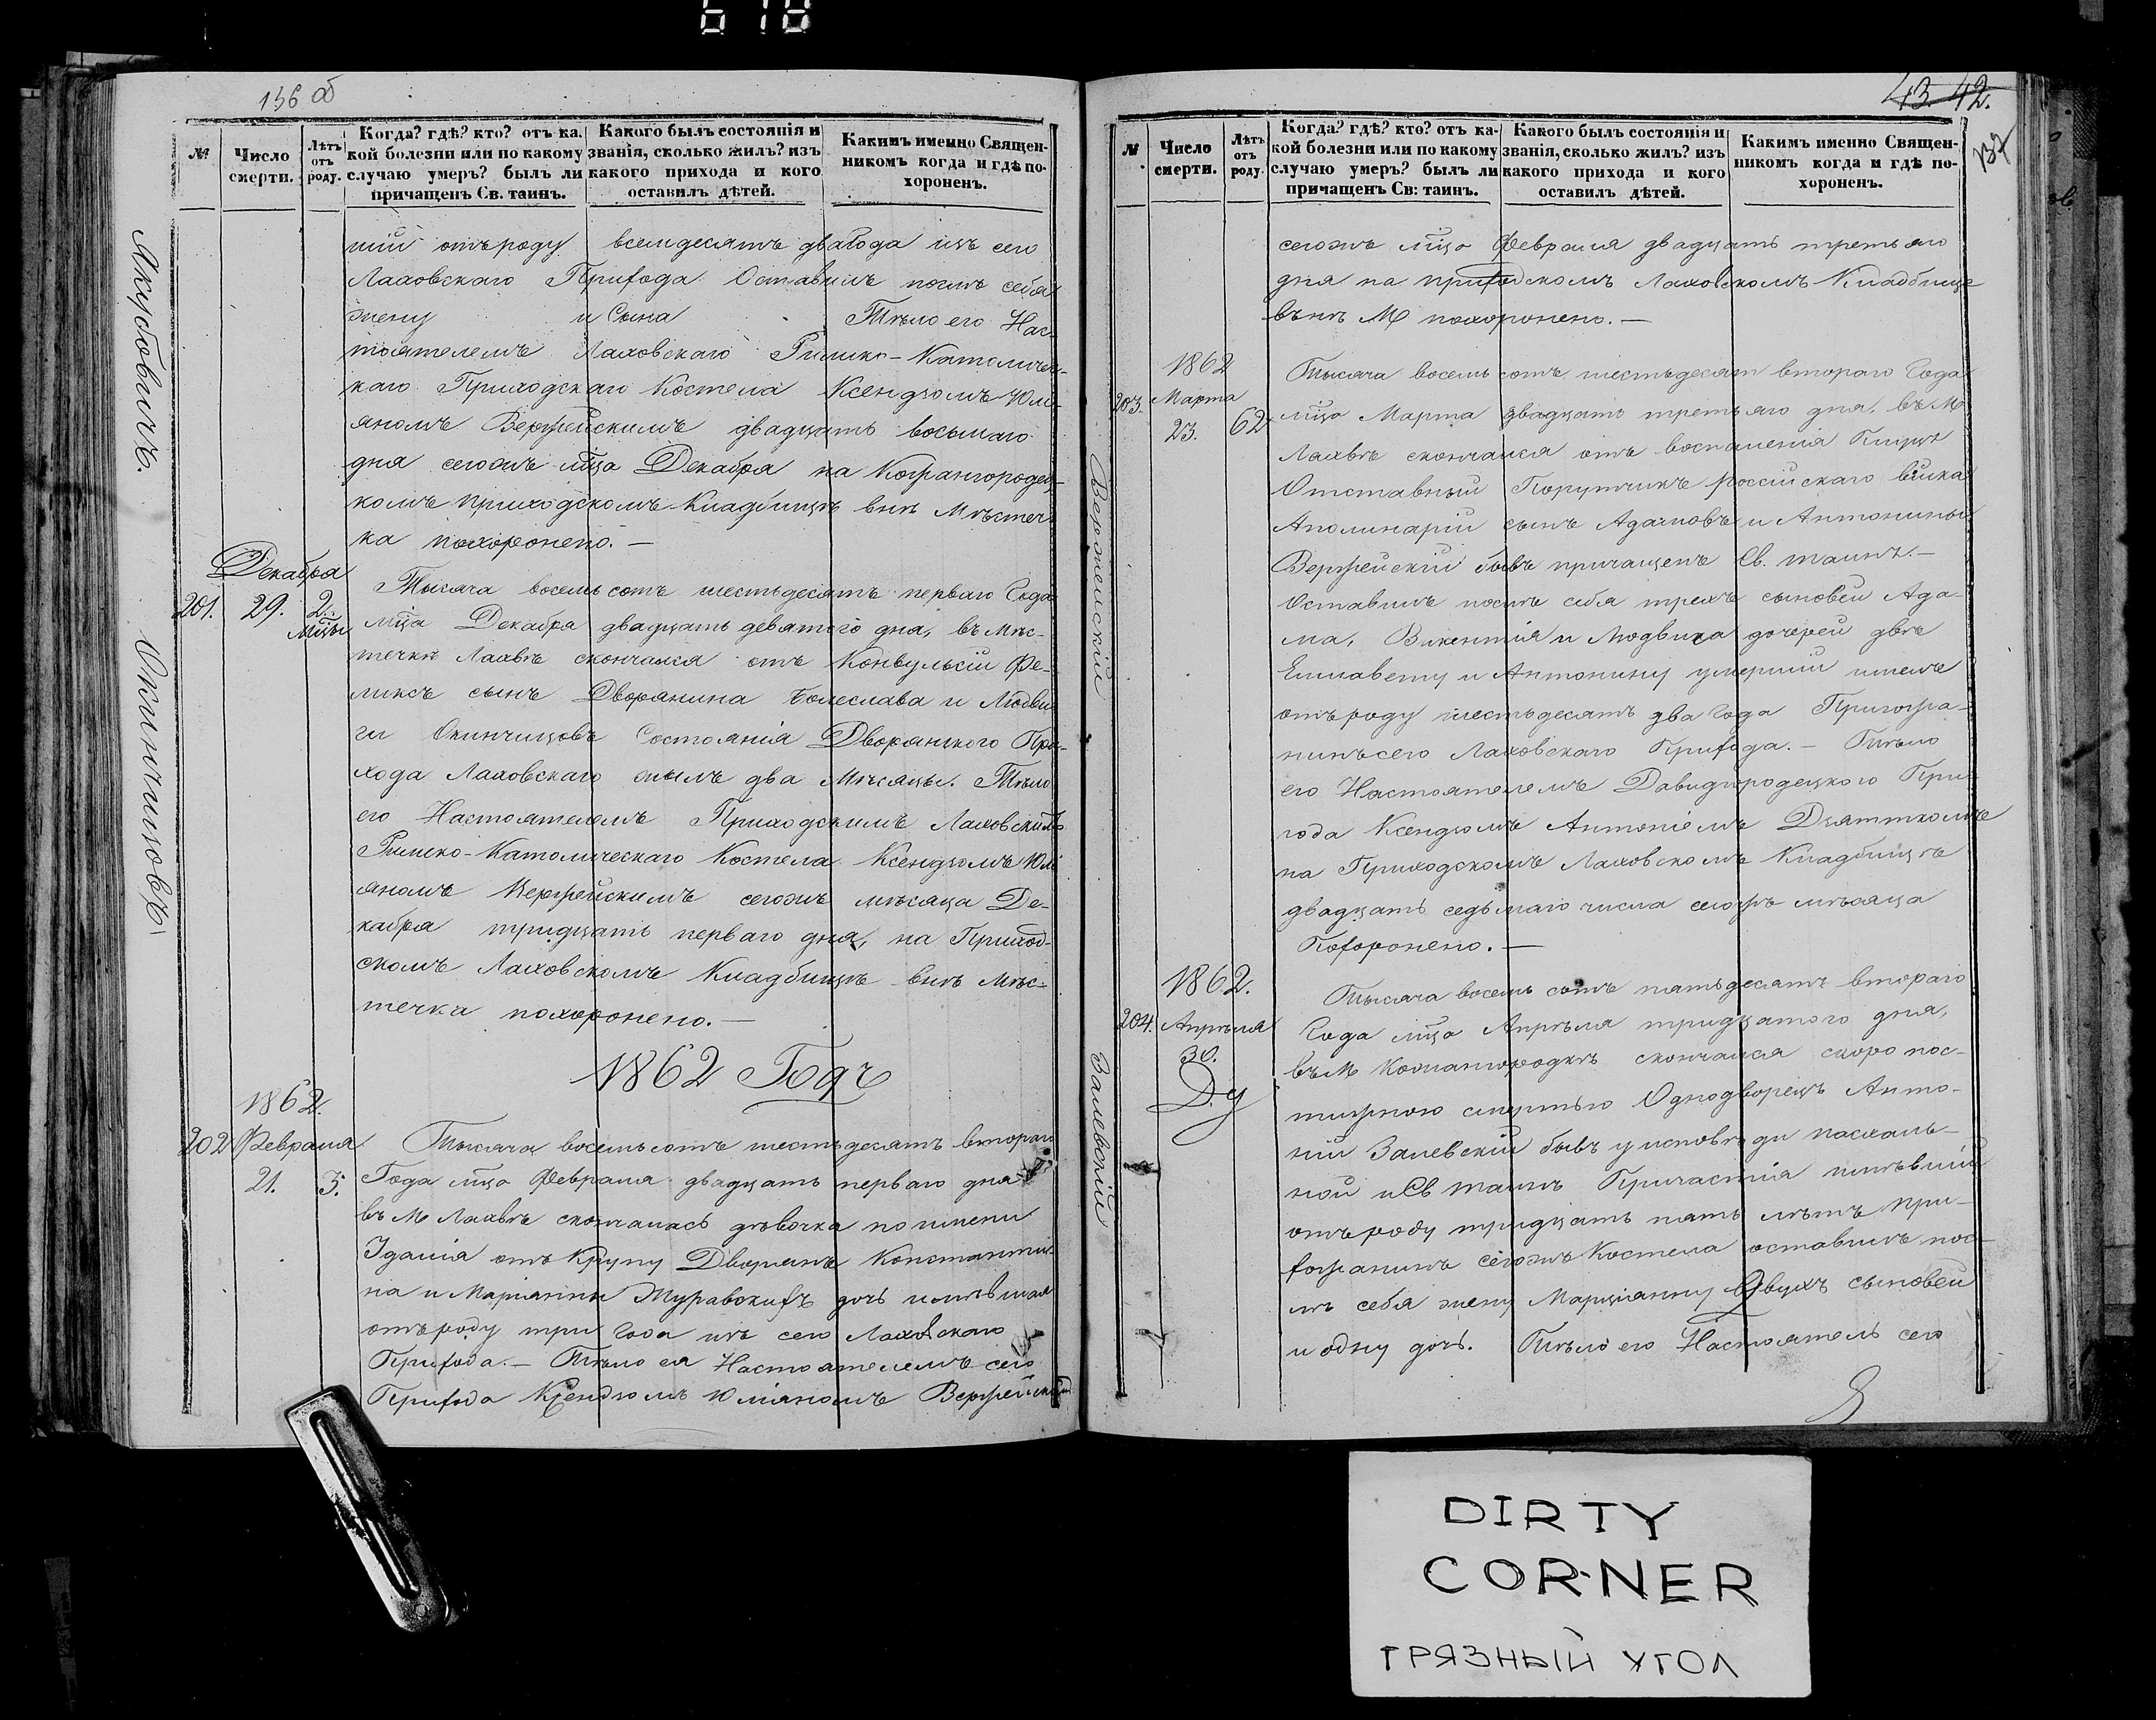 618
136 об
№
Число смерти.
Лѣтъ отъ роду.
Когда? гдѣ? кто? отъ ка-
кой болезни или по какому
случаю умеръ? былъ ли
причащенъ Св. таинъ.
Какого былъ состоянія и
званія, сколько жилъ? изъ
какого прихода и кого
оставилъ дѣтей.
Какимъ именно Священ-
никомъ когда и гдѣ по-
хороненъ.
шій отъ роду всемдесятъ два Года изъ сего
Лаховскаго Прихода Оставилъ послѣ себя
жену и Сына Тѣло его Нас-
тоятелемъ Лаховскаго Римско-Католичес-
каго Приходскаго Костела Ксендзомъ Юлі-
аномъ Вержейскимъ двадцать восьмаго
дня сегожъ мца Декабря на Кожангородец-
комъ приходскомъ Кладбищѣ внѣ Мѣстеч-
ка похоронено.—
Декабря
201. 29. 2. Мцы
Тысяча восемьсотъ шестьдесятъ перваго Года
мца Декабря двадцать девятого дня, въ Мѣс-
течкѣ Лахвѣ скончался отъ Конвульсіи Фе-
ликсъ сынъ Дворянина Болеслава и Людви-
ги Окинчицовъ Состоянія Дворянского При-
хода Лаховскаго жылъ два Мѣсяцы. Тѣло
его Настоятелемъ Приходскимъ Лаховскимъ
Римско-Католическаго Костела Ксендзомъ Юлі
аномъ Вержейскимъ сегожъ мѣсяца Де-
кабря тридцать перваго дня, на Приход-
скомъ Лаховскомъ Кладбищѣ внѣ Мѣс-
течка похоронено.—
1862 Годъ
1862.
202 Февраля
21. 3.
Тысяча восемьсотъ шестьдесятъ втораго
Года мца Февраля двадцать перваго дня
въ М Лахвѣ скончалась дѣвочка по имени
Ідалія отъ Крупу Дворянъ Константи-
на и Маріанны Журавскихъ дочь имѣвшая
отъ роду три Года изъ сего Лаховскаго
Прихода.— Тѣло ея Настоятелемъ сего
Прихода Ксендзомъ Юліаномъ Вержейскимъ
Якубовичъ.
Окинчицовъ
43 42.
137
№
Число смерти.
Лѣтъ отъ роду.
Когда? гдѣ? кто? отъ ка-
кой болезни или по какому
случаю умеръ? былъ ли
причащенъ Св: таинъ.
Какого былъ состоянія и
званія, сколько жилъ? изъ
какого прихода и кого
оставилъ дѣтей.
Какимъ именно Священ-
никомъ когда и гдѣ по-
хороненъ.
сегожъ мца Февраля двадцать третьяго
дня на приходскомъ Лаховскомъ Кладбище
внѣ М похоронено.—
1862
203. Марта
23. 62
Тысяча восемь сотъ шестьдесят втораго Года
мца Марта двадцать третьяго дня, въ М
Лахвѣ скончался отъ воспаленія
Отставный Порутчикъ россійскаго
Аполинарій сынъ Адамовъ и Антонины
Вержейскій бывъ причащенъ Св. таинъ.—
Оставилъ послѣ себя трехъ сыновей Ада-
ма, Викентія и Людвика дочерей двѣ
Елисавету и Антонину умершій имелъ
отъ роду шестьдесятъ два Года Пригожа-
нинъ сего Лаховскаго Прихода.— Тѣло
его Настоятелемъ Давидгородецкого При
года Ксендзомъ Антоніемъ
на Приходскомъ Лаховскомъ Кладбищѣ
двадцать седьмаго числа сегожъ мѣсяца
Похоронено.—
1862.
204. Апрѣля
30.
Д. у
Тысяча восемь сотъ пятьдесятъ втораго
Года мца Апрѣля тридцатого дня,
въ М Кожангородкѣ скончался скоропос-
тижною смертью Однодворецъ Анто-
ній Залевскій бывъ у исповѣди пасхаль-
ной и Св таинъ Причастія имѣвшій
отъ роду тридцать пять лѣтъ при-
хожанинъ сегожъ Костела оставилъ пос-
лѣ себя жену Марціанну Двухъ сыновей
и одну дочь. Тѣло его Настоятель сего
Вержейскій
Залевскій
DIRTY
CORNER
ГРЯЗНЫЙ УГОЛ